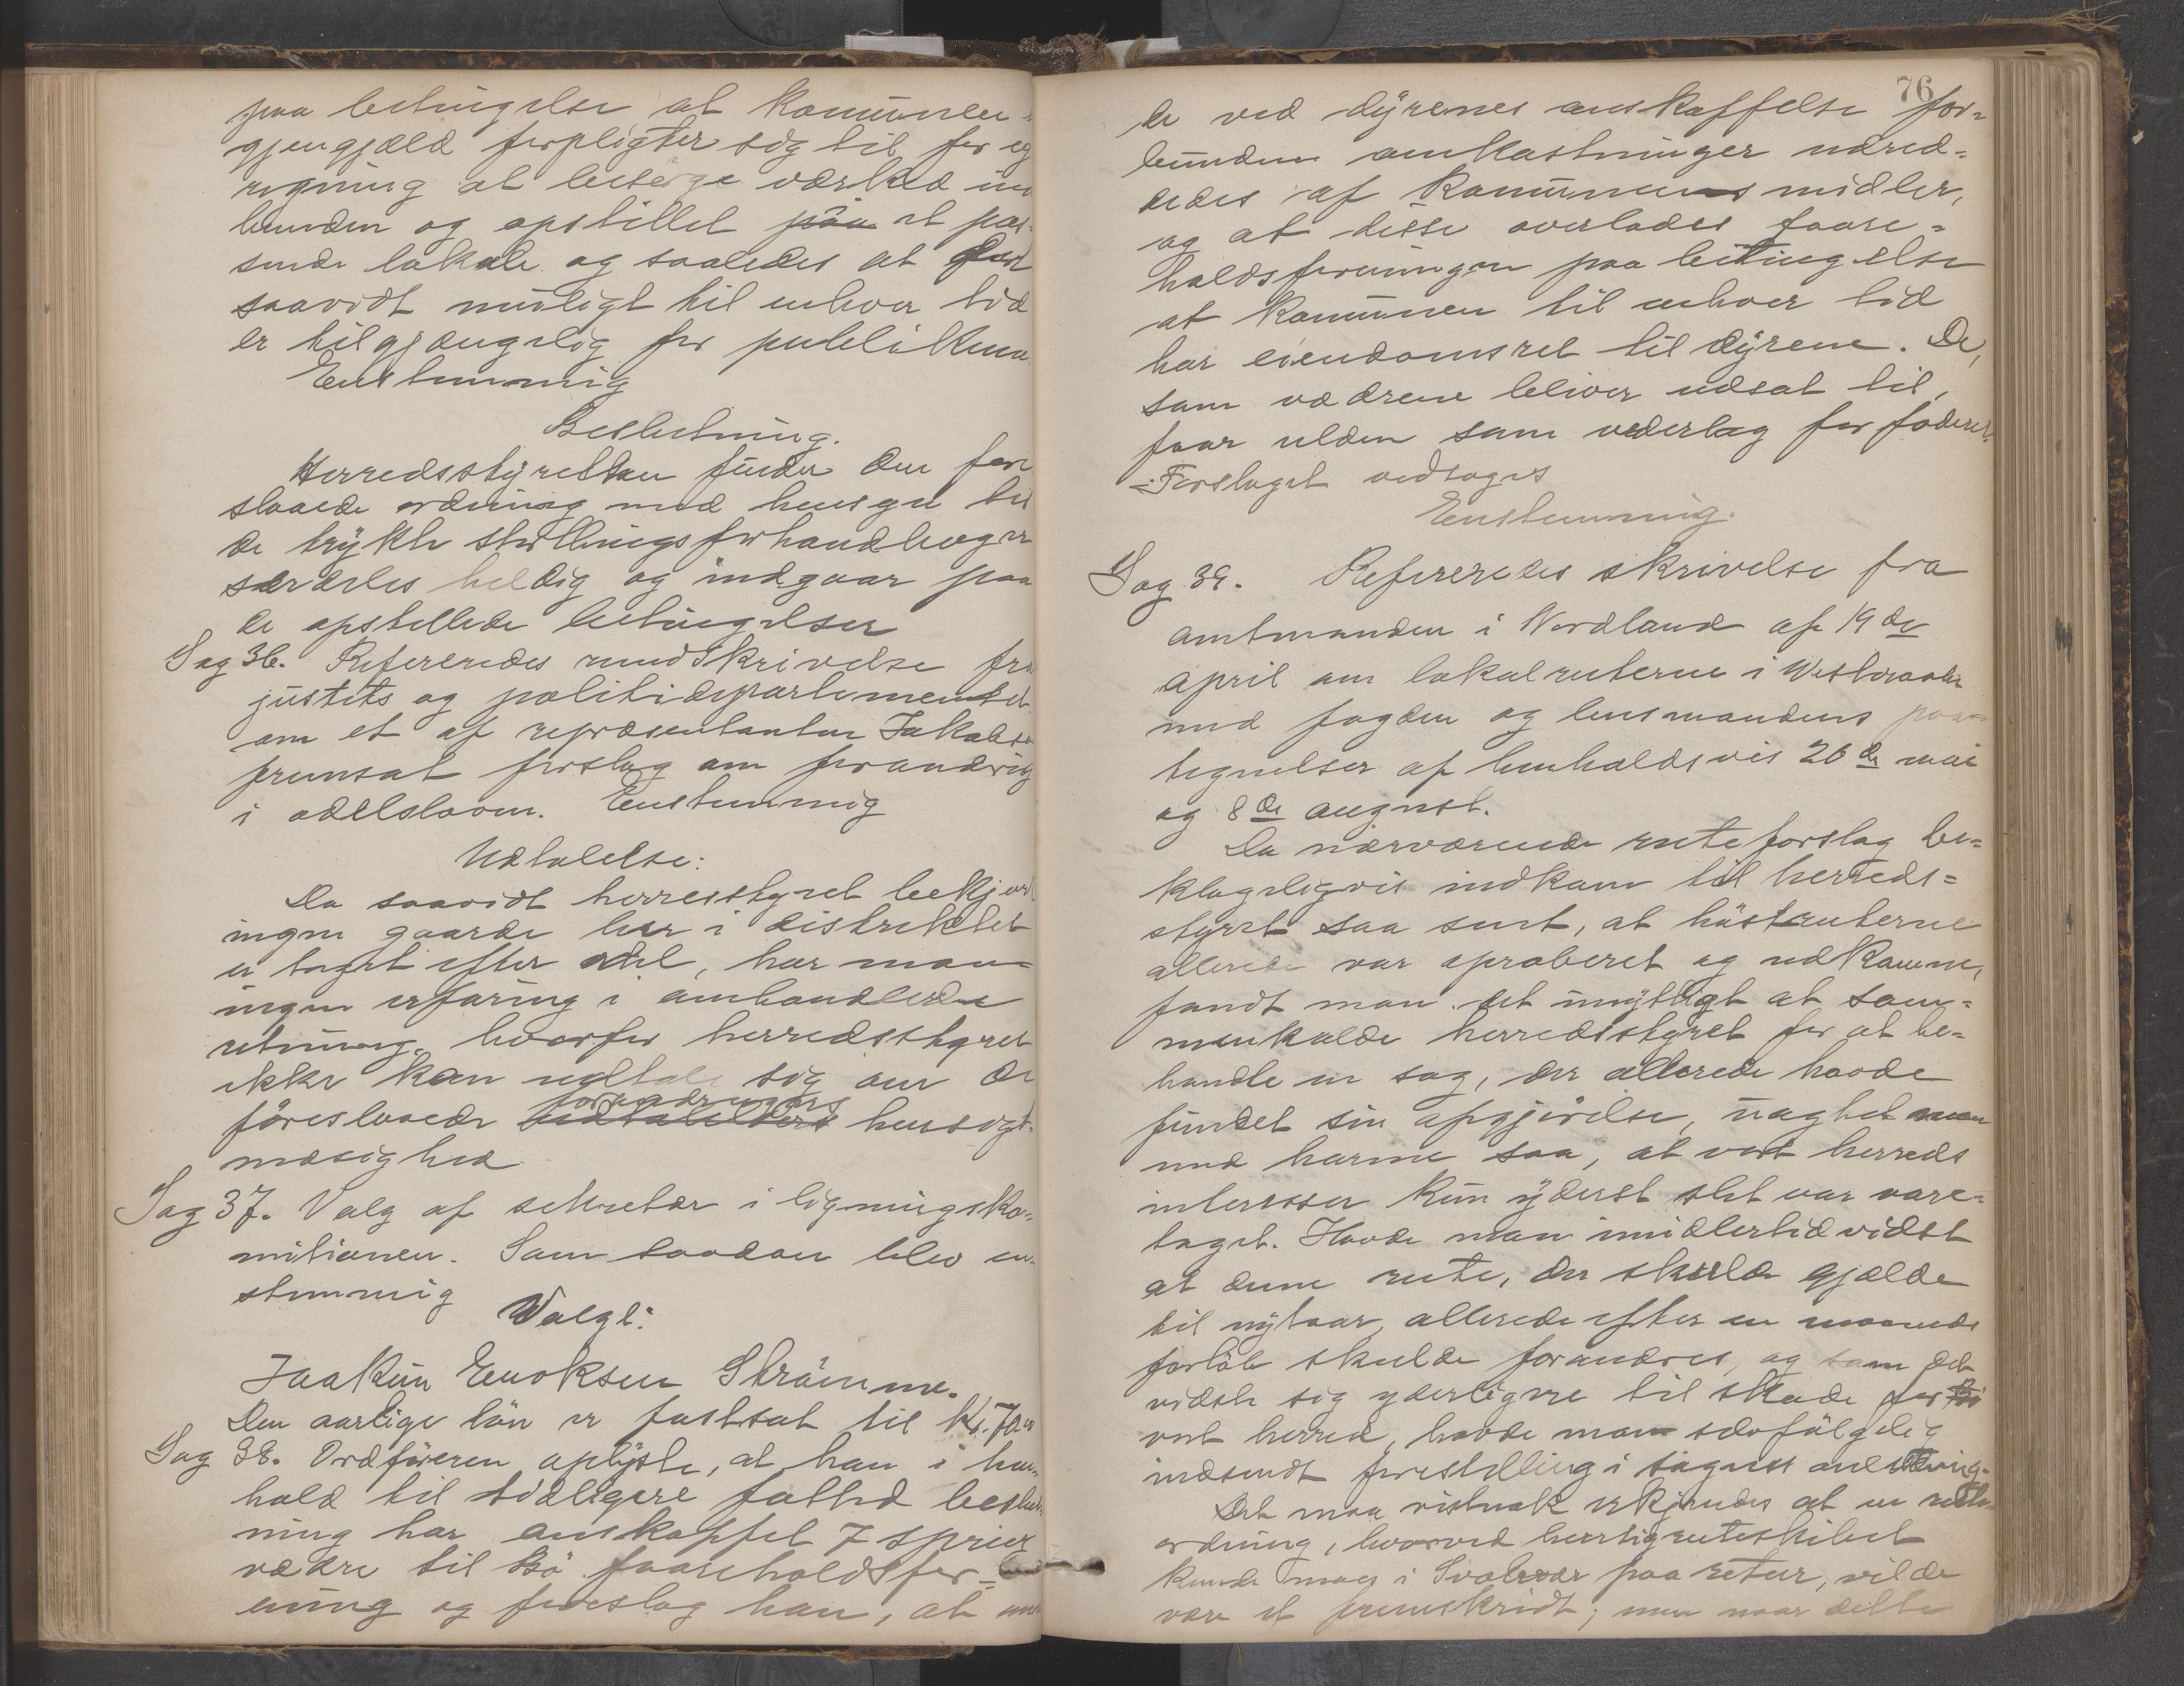 paa betingelse at kommunen
gjengjæld forpligter sig til for eg
regning at besørge værket ind
bunden og opstillet paa et pas-
sende lokale og saaledes at det
saavidt muligt til enhver tid
er tilgjængelig for publikum.
Enstemmig
Beslutning.
Herredsstyrelsen finder den fore
slaaede ordning med hensyn til
de trykte storthingsforhandlinger
særdeles heldig og indgaar paa
de opstillede betingelser
Sag 36. Refereredes rundskrivelse fra
justits og politidepartementet
om et af repræsentanten Jakobsen
fremsat forslag om forandring
i odelsloven. Enstemmig
Udtalelse:
Da saavidt herresstyret bekjendt
ingen gaarde her i distriktet
er taget efter odel, har man
ingen erfaring i omhandlede
retning, hvorfor herredsstyret
ikke kan udtale sig om de
forandringers
föreslaaede udtalelsers hensigt-
mæsighed
Sag 37. Valg af sekretær i ligningsko-
mitionen. Som saadan blev en-
stemmig
Valgt:
Joakim Enoksen Strömme.
Den aarlige lön er fastsat til kr. 70.00
Sag 38. Ordföreren oplyste, at han i hen-
hold til tidligere fatted beslut-
ning har anskaffet 7 spriex
vædre til Bö faareholdsfor-
ening og foreslog han, at om
76
de ved dyrenes anskaffelse for-
bundne omkostninger udred-
dedes af kommunens midler,
og at disse overlades faare-
holdsforeningen paa betingelse
at kommunen til enhver tid
har eiendomsret til dyrene. De,
som vædrene bliver udsat til,
faar ulden som vederlag for foderet.
Forslaget vedtoges
Enstemmig.
Sag 39. Refereredes skrivelse fra
amtmanden i Nordland af 19de
april om lokalruterne i Vesteraalen
med fogden og lensmandens paa-
tegnelser af henholdsvis 26de mai
og 8de august.
Da nærværende ruteforslag be-
klageligvis indkom til herreds-
styret saa sent, at höstruterne
allerede var aproberet og udkomne,
fandt man det unyttigt at sam-
menkalde herredsstyret for at be-
handle en sag, der allerede havde
fundet sin afgjörelse, uagtet man
med harme saa, at vort herreds
interesser kun yderst slet var vare-
taget. Havde man imidlertid vidst
at denne rute, der skulde gjælde
til nytaar, allerede efter en maaneds
forlöb skulde forandres, og som det
vidste sig yderligere til skade for
vort herred, havde man selvfölgelig
indsendt forestilling i sagens anledning.
Det maa vistnok erkjendes at en rute-
ordning, hvorved hurtigruteskibet
kunde naaes i Svolvær paa retur, vilde
være et fremskridt; men naar dette